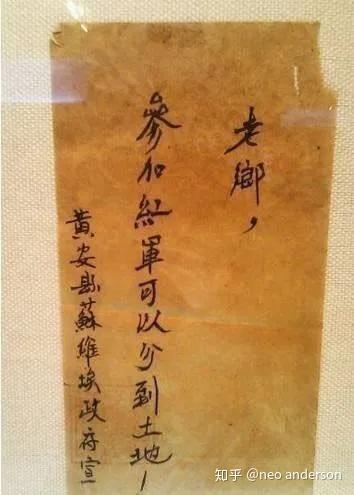 老鄉，
參加紅軍可以分到土地！
黃安縣蘇維埃政府宣
知乎 @neo anderson